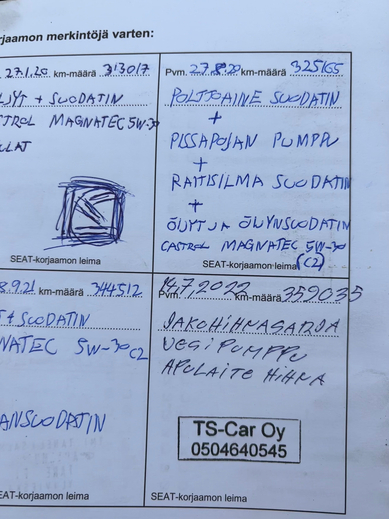 rjaamon merkintöjä varten:
27.1.20 km-määrä 313017
+ SUODATIN
CASTROL MAGNATEC 5W-30
ULAT
SEAT-korjaamon leima
Pvm. 27.8.20 km-määrä 325165
POLTTOAINE SUODATIN
+
PISSAPOJAN PUMPPU
+
RAITISILMA SUODATIN
+
ÖLJYT JA ÖLJYNSUODATIN
CASTROL MAGNATEC 5W-30
(C2)
SEAT-korjaamon leima
8.9.21 km-määrä 344512
T+SUODATIN
NATEC 5W-30 C2
ANSUODATIN
EAT-korjaamon leima
Pvm. 14.7.2022 km-määrä 359035
JAKOHIHNASARJA
VESIPUMPPU
APULAITE HIHNA
TS-Car Oy
0504640545
SEAT-korjaamon leima